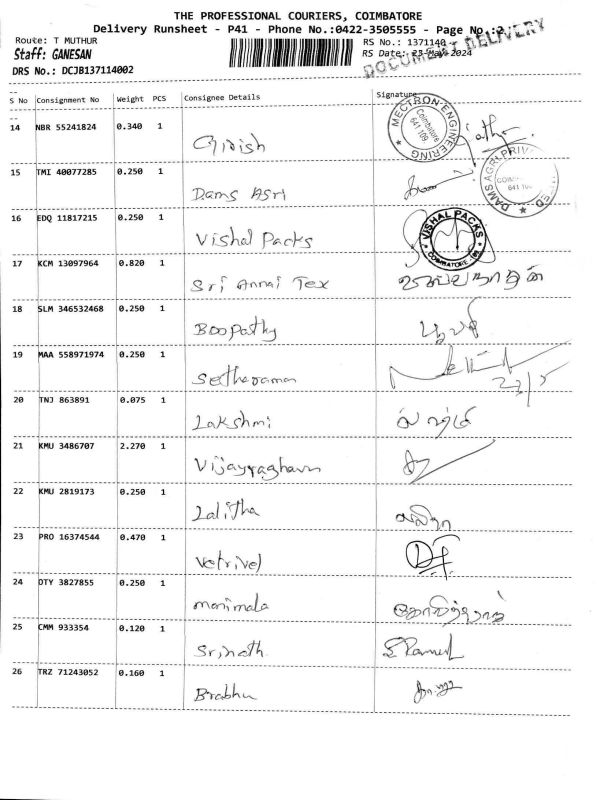 THE PROFESSIONAL COURIERS, COIMBATORE
Delivery Runsheet - P41 - Phone No.:0422-3505555 - Page No.:2
DOCUMENT DELIVERY
Route: T MUTHUR
RS No.: 1371140
Staff: GANESAN
RS Date: 23-May-2024
DRS No.: DCJB137114002
S No Consignment No Weight PCS Consignee Details Signature
14 NBR 55241824 0.340 1 Girish
MECTRON ENGINEERING Coimbatore 641 109
15 TMI 40077285 0.250 1 Dams Agri
DAMS AGRI PRIV
16 EDQ 11817215 0.250 1 Vishal Packs
VISHAL PACKS COIMBATORE
17 KCM 13097964 0.820 1 Sri Annai Tex
18 SLM 346532468 0.250 1 Boopathy பூபதி
19 MAA 558971974 0.250 1 Seetharaman 23/5
20 TNJ 863891 0.075 1 Lakshmi
21 KMU 3486707 2.270 1 Vijayraghavn
22 KMU 2819173 0.250 1 Lalitha லலிதா
23 PRO 16374544 0.470 1 Vetrivel
24 DTY 3827855 0.250 1 manimala
25 CMM 933354 0.120 1 Srinath
26 TRZ 71243052 0.160 1 Brabhu